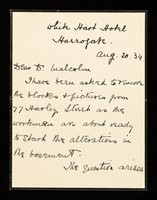 White Hart Hotel
Harrogate.
Aug. 20. 34
Dear Dr Malcolm
I have been asked to remove
the blocks & pictures from
77 Harley Street as the
workmen are about ready
to start the alterations in
the basement.
The question arises